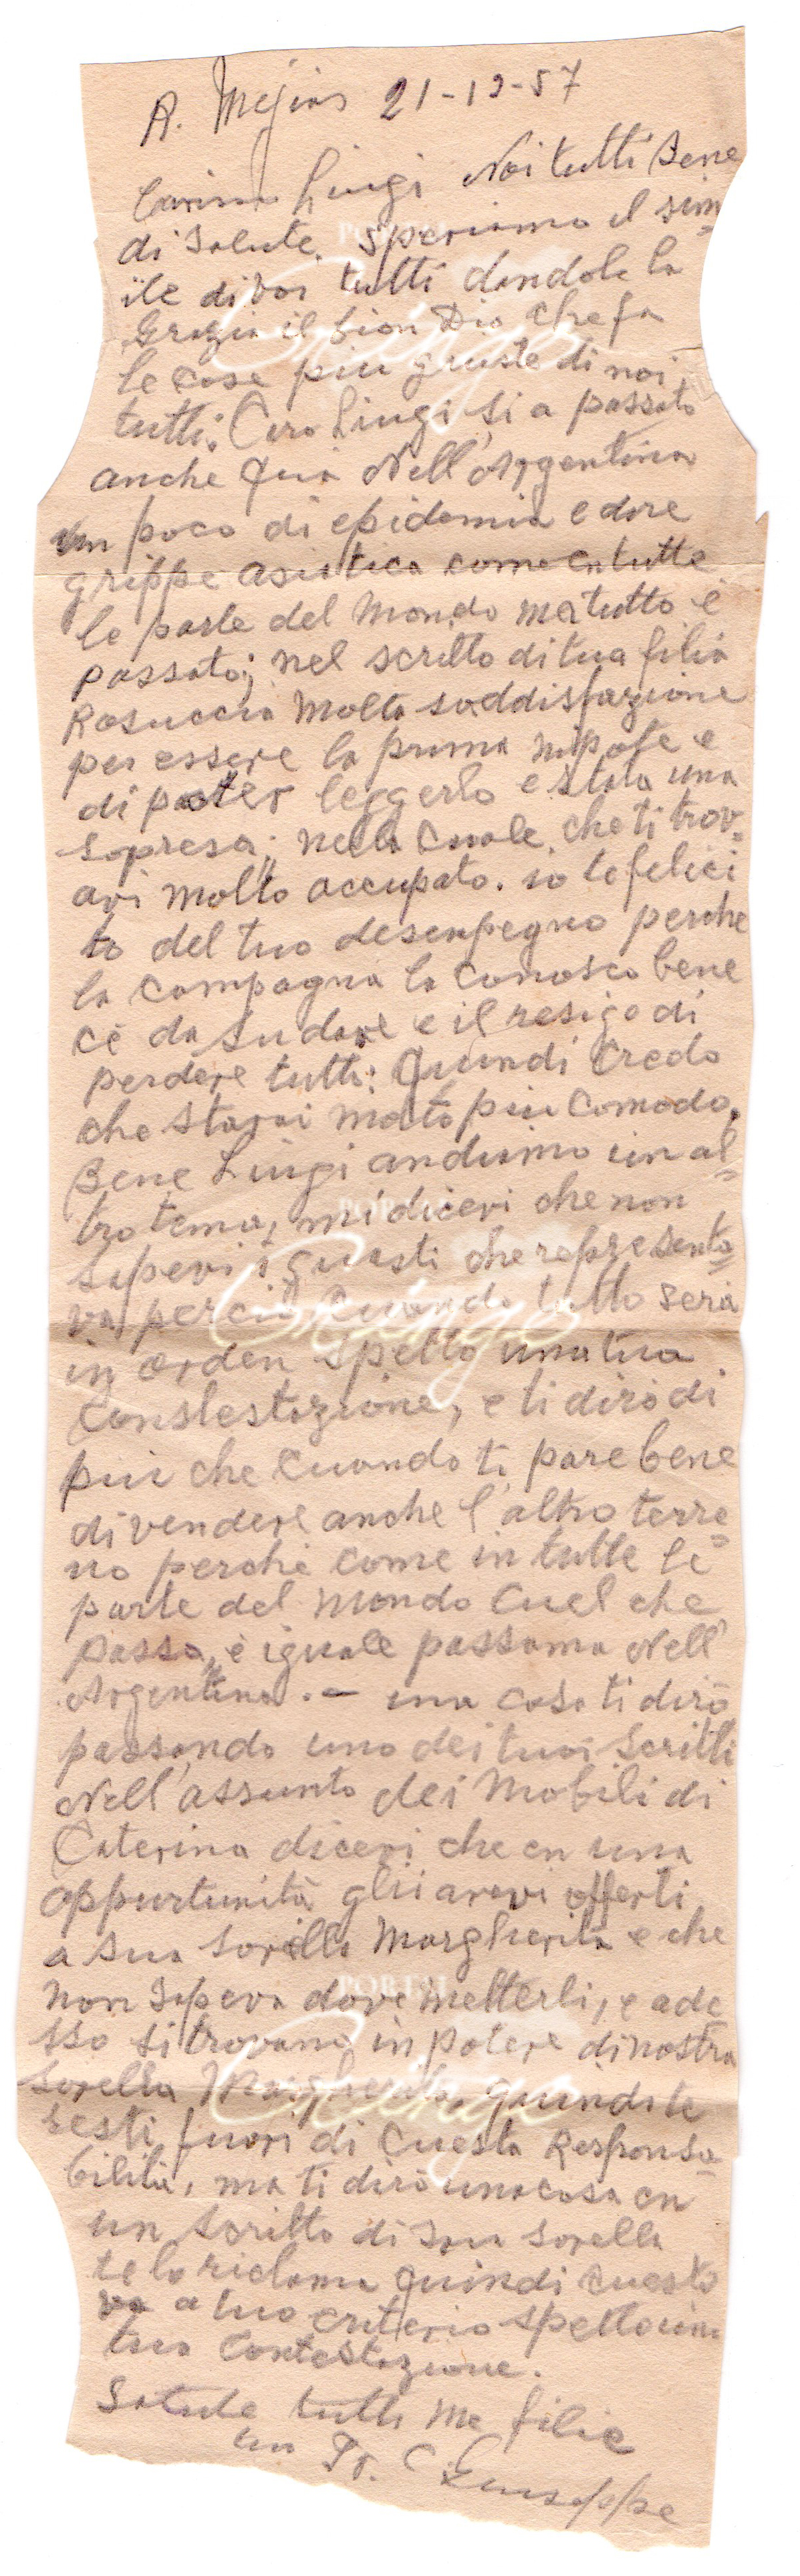 R. Mejias 21-12-57
Carino Luigi Noi tutti Bene
di Salute. Speriamo il sim=
ile di voi tutti dandole la
Grazia il bion Dio che fa
le cose piu giuste di noi
tutti: Caro Luigi, si a passato
anche Quia Nell'Argentina
un poco di epidemia e dore
grippe asiatica come en tutte
le parte del Mondo ma tutto è
passato; nel scritto di tua filia
Rosuccia Molta soddisfazione
per essere la prima nipote e
di poter leggerlo e stata una
sopresa; nella Cuale che ti trov=
avi molto accupato. io te felici
to del tuo desenpegno perche
la campagna la Conosco bene
cè da sudare e il resigo di
perdere tutti: Quindi Credo
che starai molto piu Comodo.
Bene Luigi andiamo un al=
tro tema, mi dicevi che non
sapevi i guasti che representa=
va perciò Cuando tutto serà
in orden spetto una tua
Constestazione, e ti dirò di
piu che Cuando ti pare bene
di vendere anche l'altro terre=
no perchè come in tutte le
parte del Mondo Cuel che
passa, è iguale passama Nell'
Argentina.- una cosa ti dirò
passando uno dei tuoi Scritti
Nell'assunto dei Mobili di
Caterina dicevi che en una
oppurtunità gli avevi offerti
a sua Sorella Margherita e che
non sapeva dove metterli, e ade
sso si trovano in potere di nostra
Sorella Margherita, Quindi te
resti fuori di Cuesta Responsa
bilità, ma ti dirò una cosa en
un scritto di sua sorella
te lo riclama Quindi Cuesto
va a tuo criterio spetto una
tua Contestazione.
Salute tutti Me filie
tuo Fr. Giuseppe
PORTAL
Oriundo
PORTAL
Oriundo
PORTAL
Oriundo